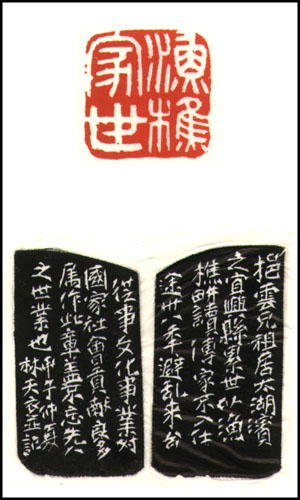 漁樵
家世
挹雲兄祖居太湖濱
之宜興縣世以漁
樵耕讀傳家不入仕
途卅八年避亂來台
從事文化事業對
國家社會貢獻良多
属作此章蓋不忘先人
之世業也
甲子仲夏
林天衣並記